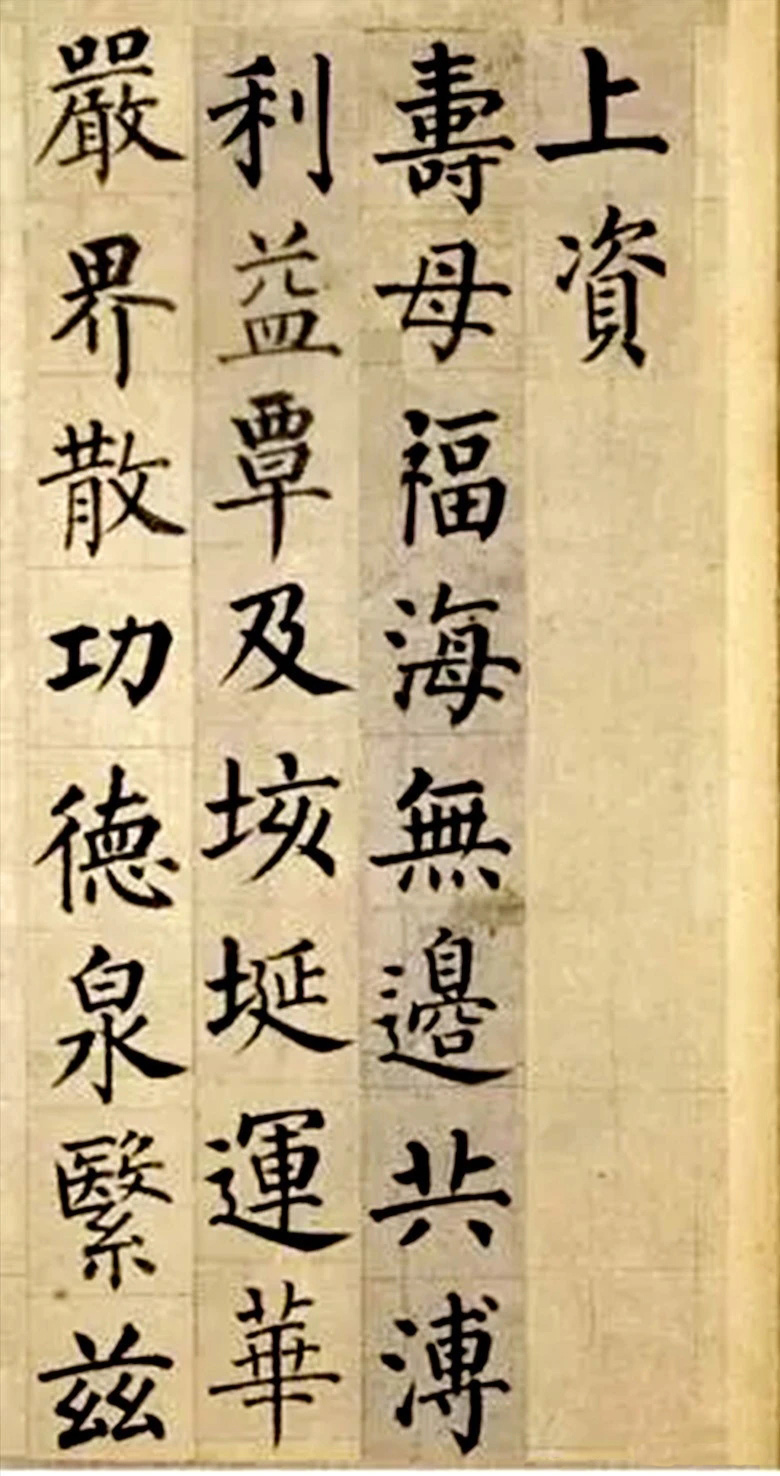 上資
壽母福海無邊共溥
利益覃及垓埏運華
嚴界散功德泉繄兹